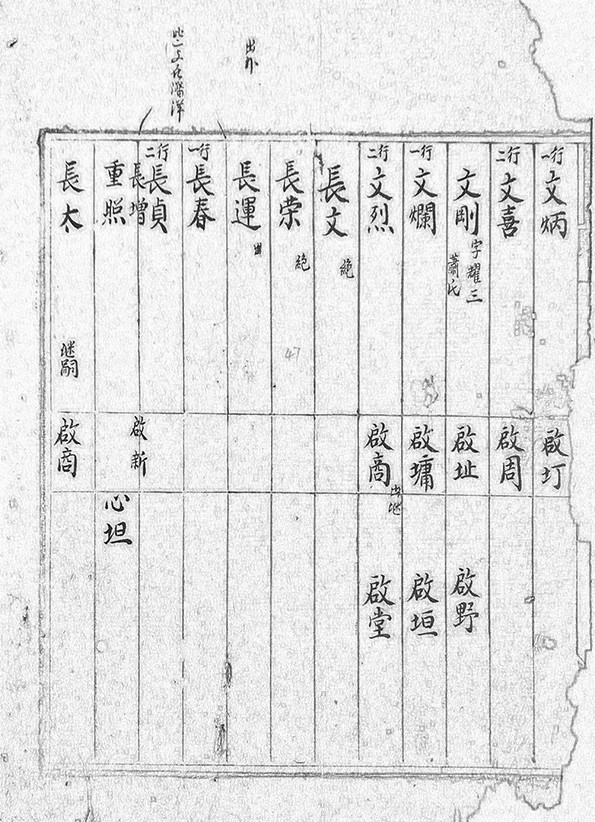 一行 文炳 啟圢
二行 文喜 啟周
文剛 字耀三 蕭氏 啟址 啟野
一行 文爛 啟墉 啟垣
二行 文烈 啟商 出继 啟堂
長文 絶
長荣 絶
47
長運 出
一行 長春
二行 長貞
長增 啟新
重照 心坦
長太 继嗣 啟商
出外